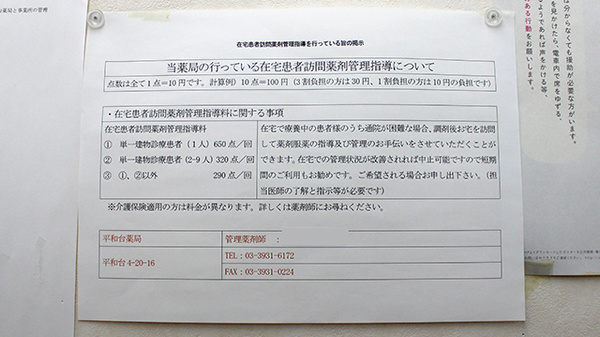 在宅患者訪問薬剤管理指導を行っている旨の掲示
当薬局の行っている在宅患者訪問薬剤管理指導について
点数は全て1点＝10円です。計算例）10点＝100円（3割負担の方は30円、1割負担の方は10円の負担です）
・在宅患者訪問薬剤管理指導料に関する事項
在宅患者訪問薬剤管理指導料
① 単一建物診療患者（1人）650点／回
② 単一建物診療患者（2-9人）320点／回
③ ①、②以外 290点／回
在宅で療養中の患者様のうち通院が困難な場合、調剤後お宅を訪問
して薬剤服薬の指導及び管理のお手伝いをさせていただくことが
できます。在宅での管理状況が改善されれば中止可能ですので短期
間のご利用もお勧めです。ご希望される場合お申し出下さい。（担
当医師の了解と指示等が必要です）
※介護保険適用の方は料金が異なります。詳しくは薬剤師にお尋ねください。
平和台薬局
管理薬剤師　：
平和台4-20-16
TEL：03-3931-6172
FAX：03-3931-0224
は分からなくても援助が必要な方がいます。
を見かけたら、電車内で席をゆずる、
るようであれば声をかける等、
ある行動をお願いします。
薬局と事業所の管理